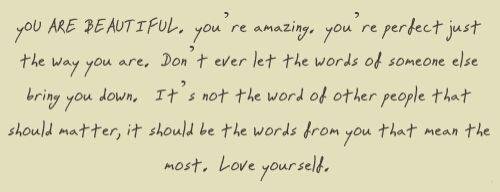 yOU ARE BEAUTIFUL. you're amazing. you're perfect just
the way you are. Don't ever let the words of someone else
bring you down. It's not the word of other people that
should matter, it should be the words from you that mean the
most. Love yourself.